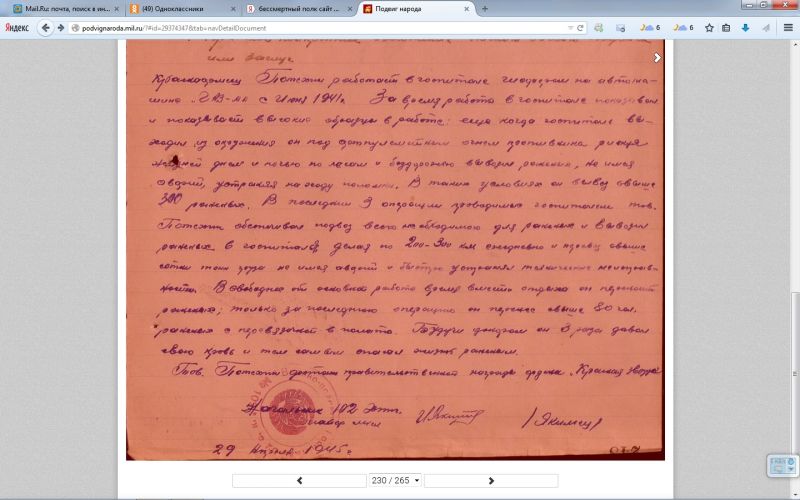 Mail.Ru: почта, поиск в ин...
(49) Одноклассники
бессмертный полк сайт ...
Подвиг народа
Яндекс
podvignaroda.mil.ru/?#id=29374347&tab=navDetailDocument
6
6
или заслуг
Красноармеец Потехин работает в госпитале шофером на автома-
шине "ГАЗ-АА" с Июня 1941г. За время работы в госпитале показывал
и показывает высокие образцы в работе: еще когда госпиталь вы-
ходил из окружения он под огнем противника рискуя
жизнью днем и ночью по лесам и бездорожью вывозил раненых, не имея
аварий, устраняя на ходу поломки. В таких условиях он вывез свыше
300 раненых. В последних 3 операциях проводимых госпиталем тов.
Потехин обеспечивал подвоз всего необходимого для раненых и вывозил
раненых в госпиталя, делая по 200-300 км ежедневно и перевез свыше
сотни тонн груза не имея аварий и быстро устраняя технические неисправ-
ности. В свободное от основной работы время вместо отдыха он переносит
раненых; только за последнюю операцию он перенес свыше 80 чел.
раненых с перевязочной в палату. Будучи донором он 3 раза давал
свою кровь и тем самым спасал жизнь раненым.
Тов. Потехин достоин правительственной награды ордена "Красная звезда"
Начальник 102
майор м/сл /Якимец/
29 Апреля 1945г
230 / 265